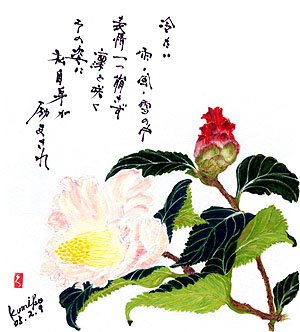 冷たい
雨・風・雪の中
表情一つ崩さず
凛と咲く
その姿に
励まされ
Kumiko
05.2.9